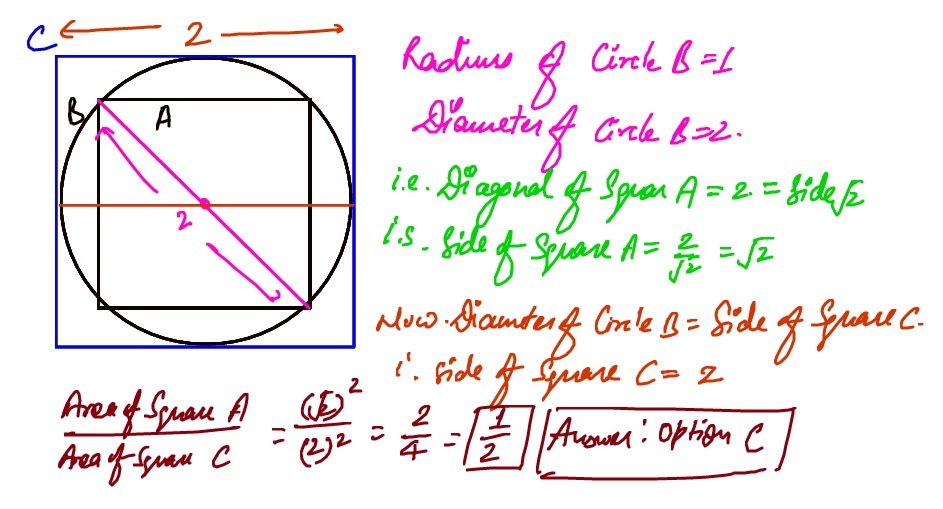 C
2
B
A
2
Radius of Circle B = 1
Diameter of Circle B = 2.
i.e. Diagonal of Squar A = 2 = Side√2
i.s. Side of Square A = 2/√2 = √2
Now. Diamter of Circle B = Side of Square C.
i. Side of Square C = 2
Area of Square A / Area of Square C = (√2)² / (2)² = 2/4 = 1/2
Answer: Option C